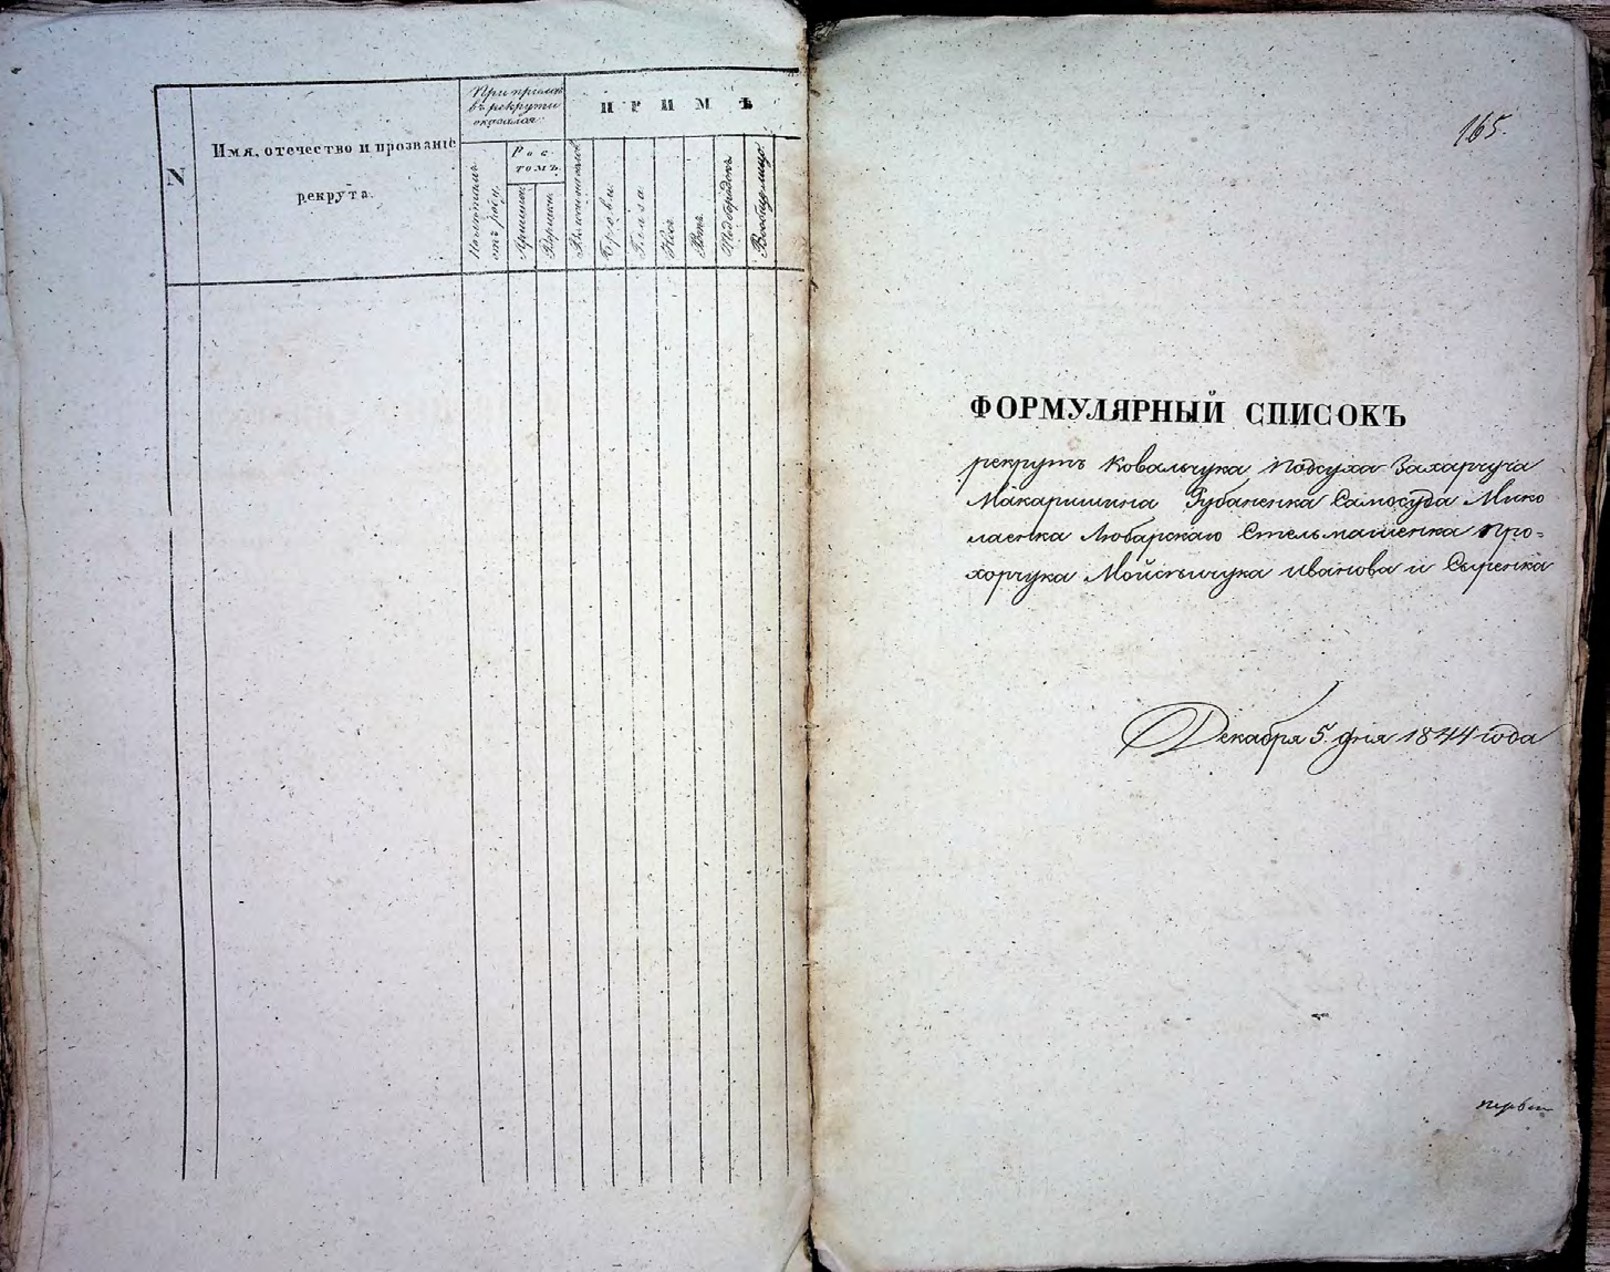 N
Имя, отечество и прозваніе
рекрута.
При пріемѣ
въ рекруты
оказался:
Рос-
томъ
ПРИМѢ
отъ роду.
Аршинъ
Вершки.
Брови.
Глаза.
Носъ.
Ротъ.
Подбородокъ
Вообще лицо.
165.
ФОРМУЛЯРНЫЙ СПИСОКЪ
рекрутъ Ковальчука Подсуха Захарчука
Макаришина Рубаненка Самосуда Мико
лаенка Любарскаго Стельмашенка Про-
хорчука Мойсѣичука Иванова и Сыренка
Декабря 5. дня 1844 года